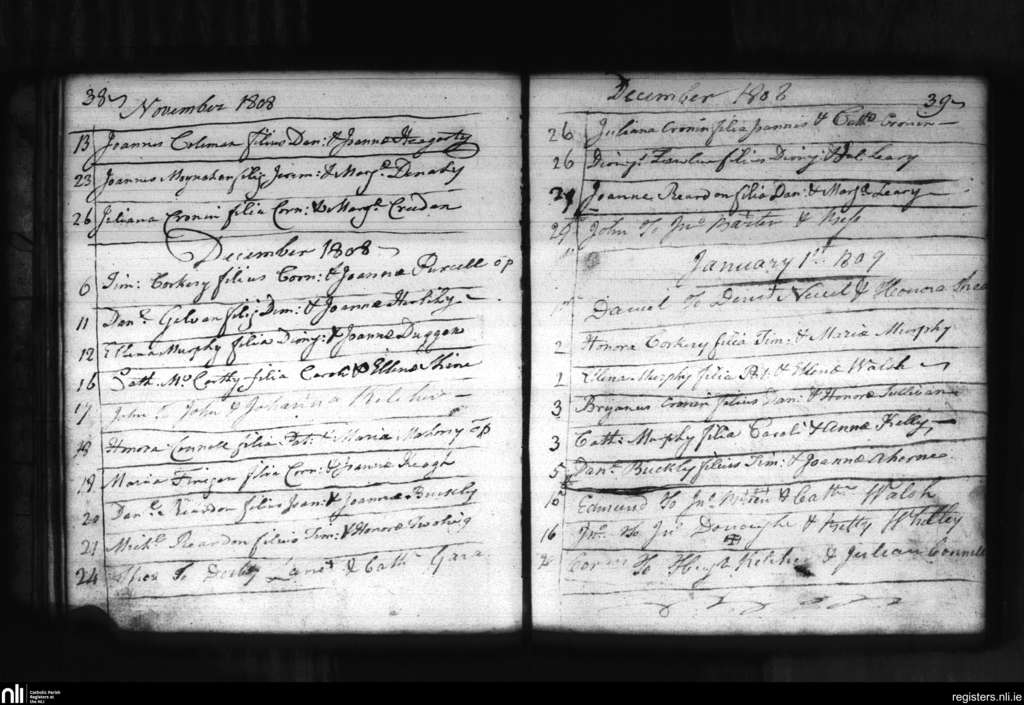 38
November 1808
13 Joannes Coleman filius Dan: & Joannæ Heagarty
23 Joannes Moynahan filij Jerem: & Marg: Denahy
26 Juliana Cronin filia Corn: & Marg: Creedan
December 1808
6 Tim: Corkery filius Corn: & Joannæ Purcell op
11 Dan: Gelvan filij Dem: & Joannæ Hartihy
12 Elena Murphy filia Diony: & Joannæ Duggan
16 Cath: Mc Carthy filia Caroli & Ellenæ Shine
17 John To John & Johanna Kelcher
18 Honora Connell filia Pat: & Maria Mahony op
19 Maria Finigan filia Corn: & Joannæ Keagh
20 Dan: Reardon filius Joan: & Joannæ Buckly
21 Mich: Reardon filius Tim: & Honoræ Twohig
24 To Darby & Cath: Gara
December 1808
39
26 Juliana Cronin filia Joannis & Cath: Cronin
26 Diony: Lawler filius Diony: & Leary
Joanne Reardon filia Dan: & Marg: Leary
29 John To Jno: Barter & Bess
January 1st: 1809
Daniel To Denis Nevel & Honora
2 Honora Corkery filia Tim: & Mariæ Murphy
2 Elena Murphy filia Pat: & Ellenæ Walsh
3 Bryanus Cronin filius Dan: & Honoræ Sullivan
3 Cath: Murphy filia Caroli & Annæ Kelly
5 Dan: Buckly filius Tim: & Joannæ Ahernee
10 Edmund To Jno: & Cath: Walsh
16 Jno: To Jno: Donoughe & Kitty Whitley
To Hugh Kelcher & Julian Connell
nli
Catholic Parish
Registers at
the NLI
registers.nli.ie